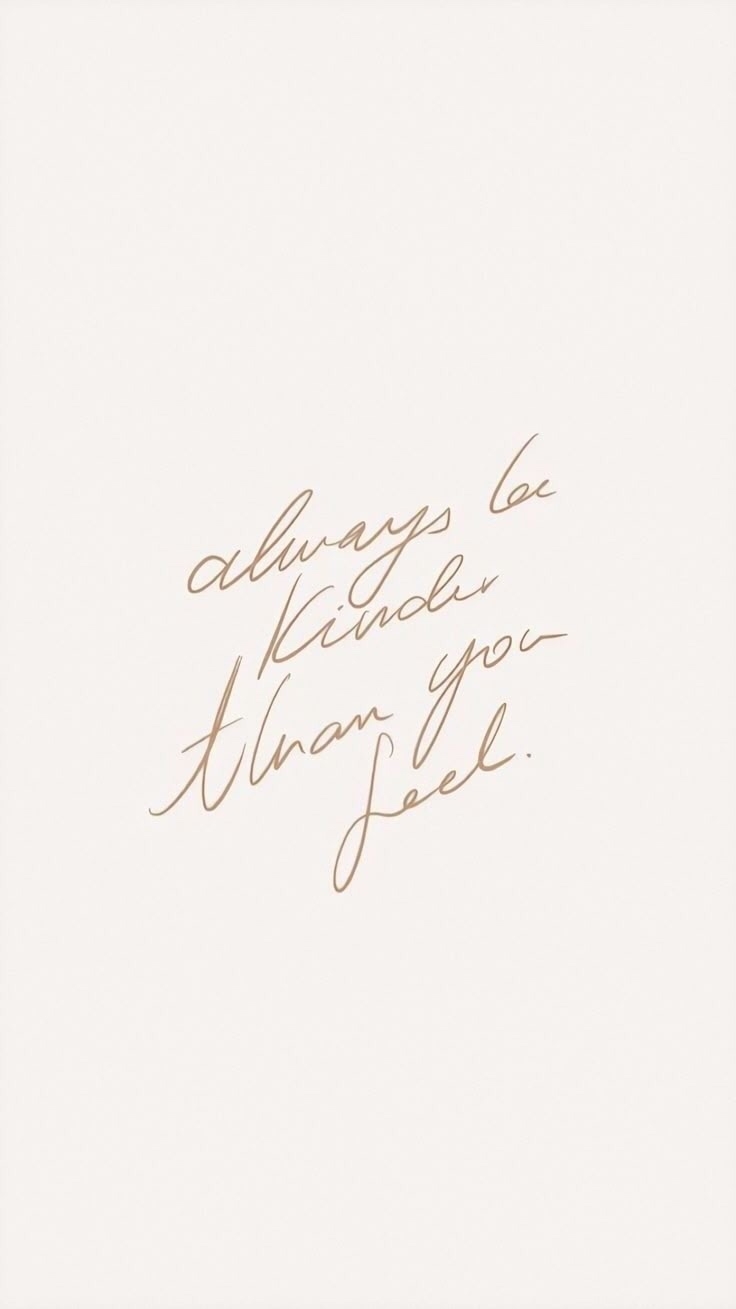 always be
kinder
than you
feel.